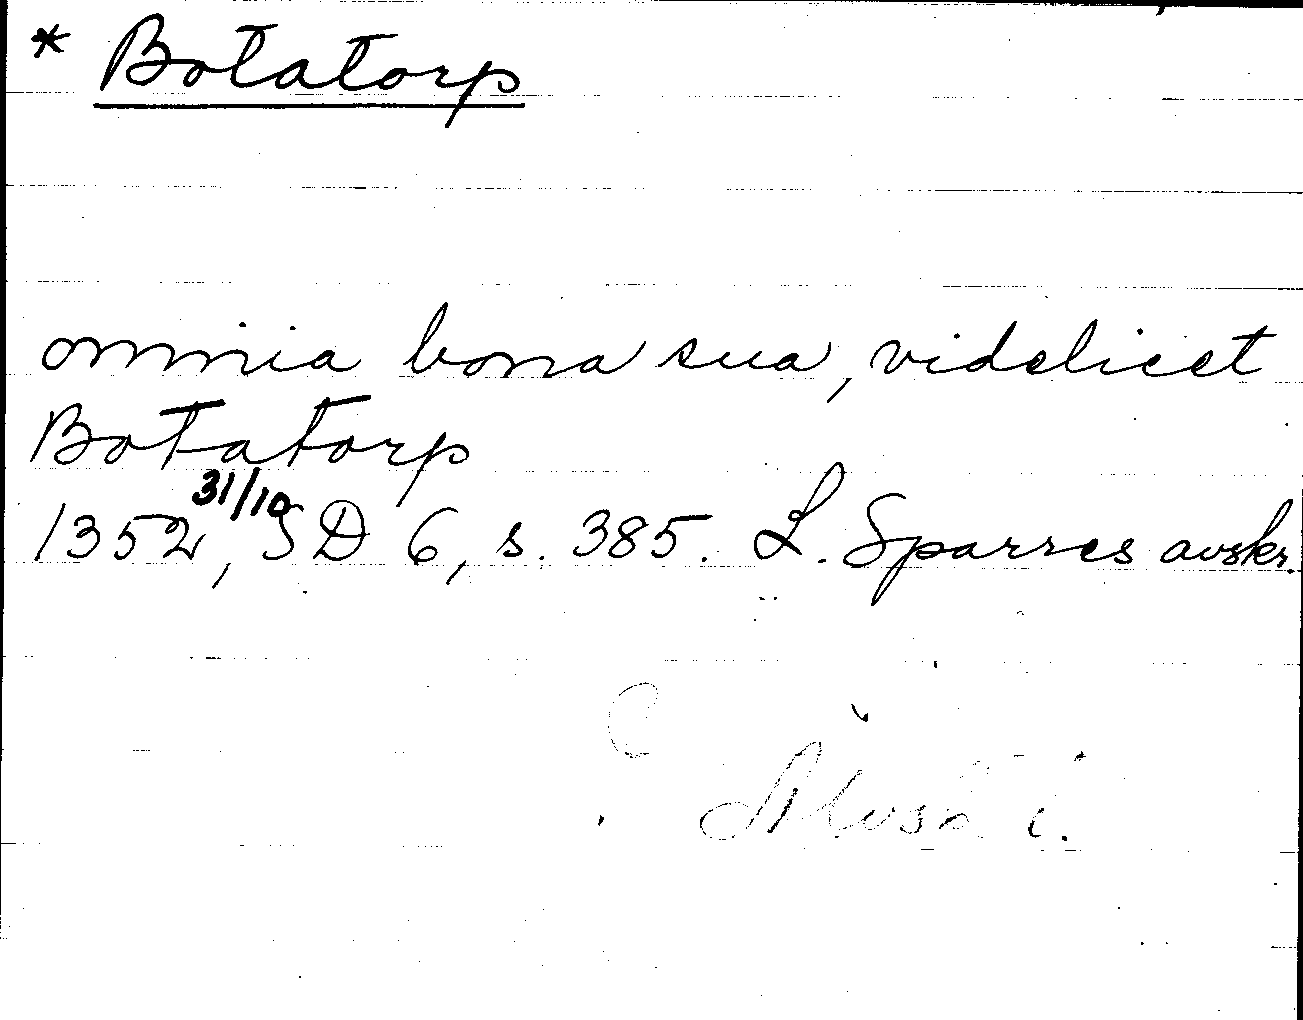 * Botatorp
omnia bona sua, videlicet
Botatorp
1352 31/10, SD 6, s. 385. L. Sparres avskr.
C